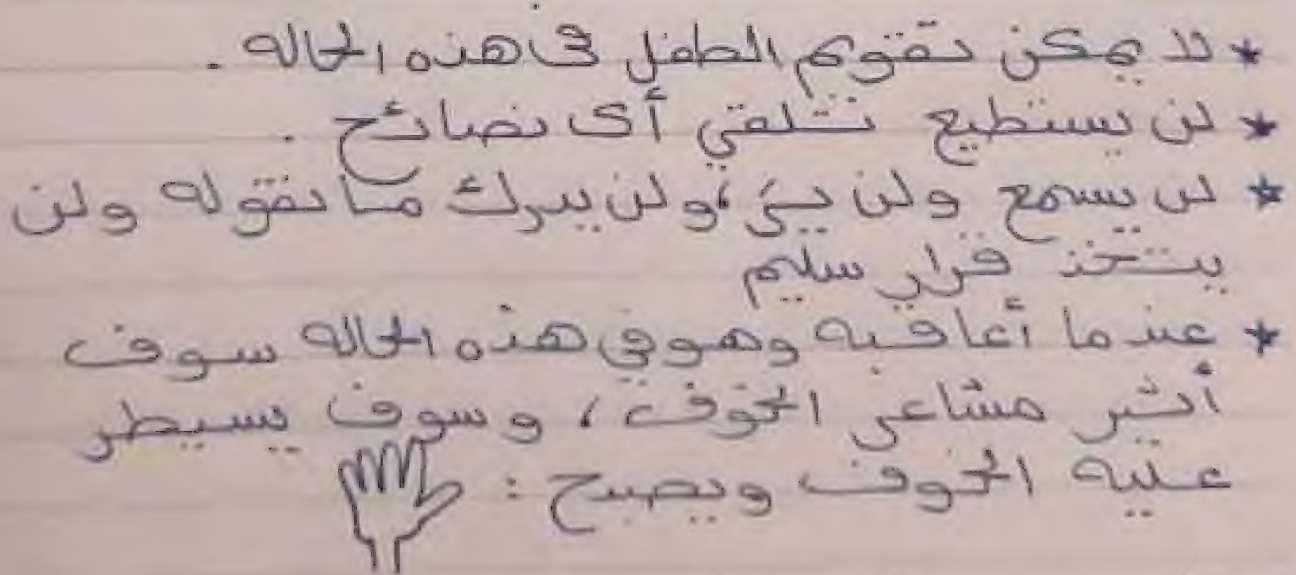 * لا يمكن تقويم الطفل فى هذه الحاله .
* لن يستطيع تلقي أى نصائح .
* لن يسمع ولن يرى، ولن يدرك ما نقوله ولن
يتخذ قرار سليم
* عندما أعاقبه وهو في هذه الحاله سوف
أثير مشاعر الخوف ، وسوف يسيطر
عليه الخوف ويصبح :